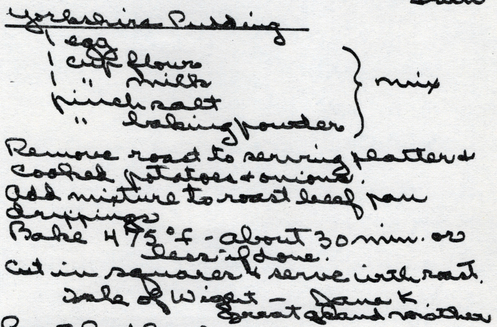 Yorkshire Pudding
1 egg
1 cup flour
1 " milk
pinch salt
" baking powder } mix
Remove roast to serving platter &
cooked potatoes & onions.
Add mixture to roast beef pan
drippings
Bake 475°F - about 30 min. or
less if done.
Cut in squares & serve with roast.
Isle of Wight - Jana K
Great grandmother